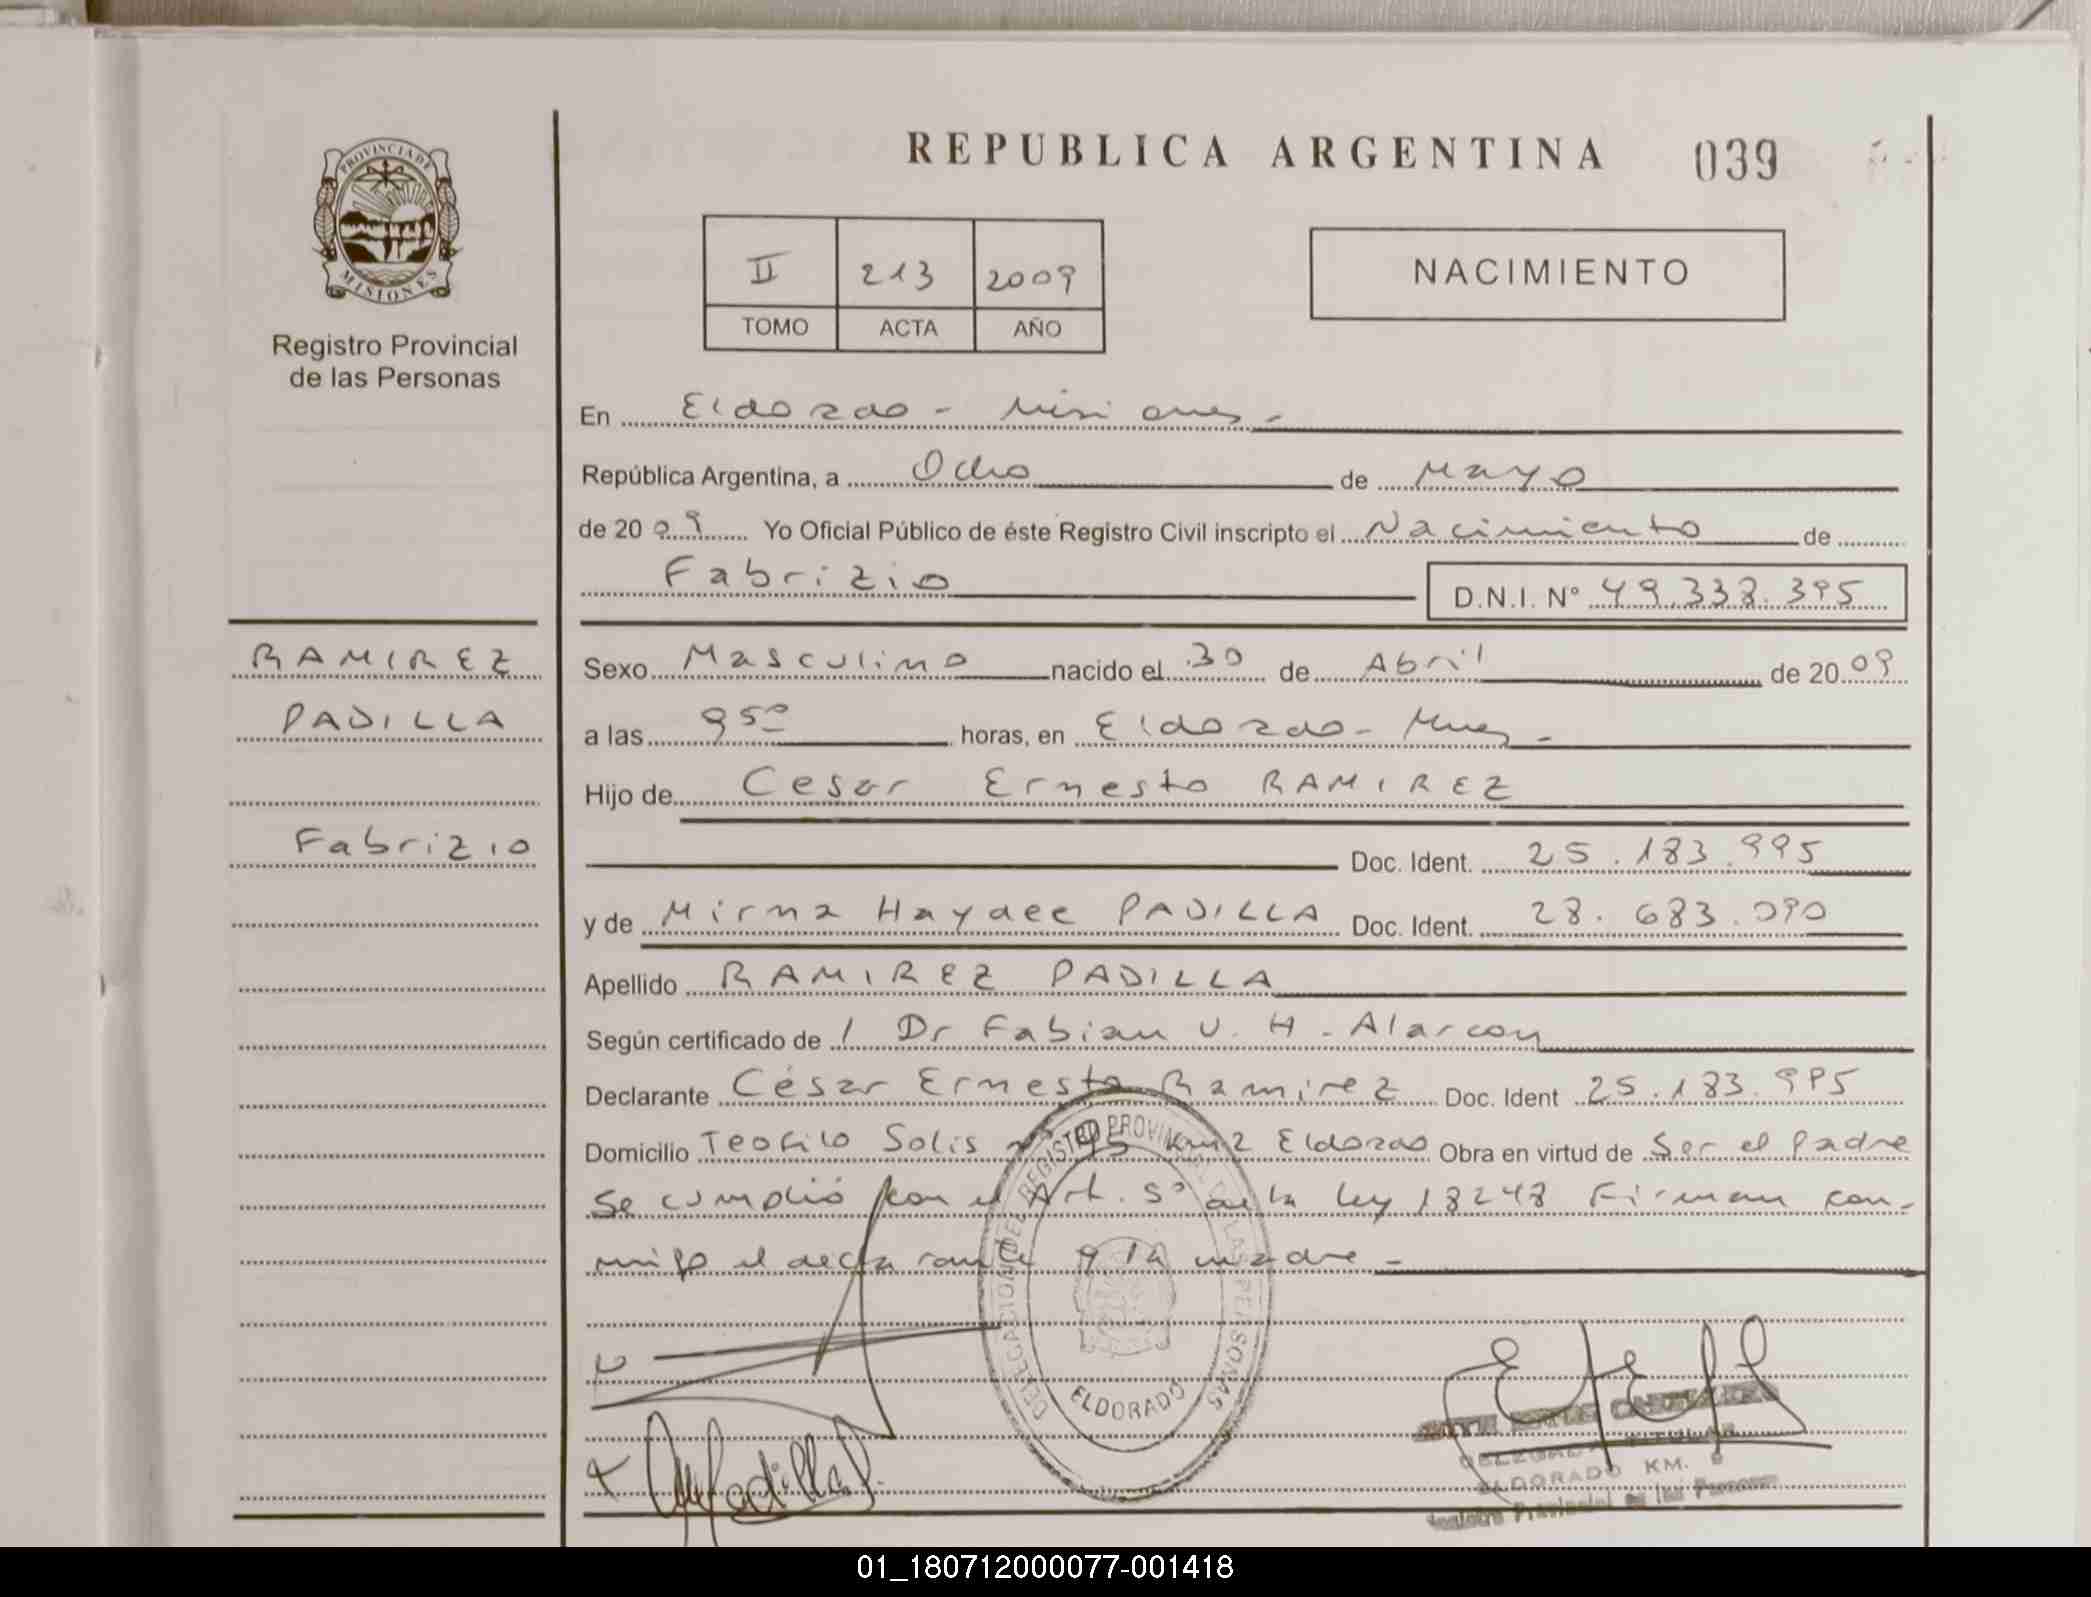 REPUBLICA ARGENTINA 039
PROVINCIA DE
MISIONES
Registro Provincial
de las Personas
II 213 2009
TOMO ACTA AÑO
NACIMIENTO
En Eldorado - Misiones -
República Argentina, a Ocho de Mayo
de 2009 Yo Oficial Público de éste Registro Civil inscripto el Nacimiento de
Fabrizio D.N.I. Nº 49.338.395
RAMIREZ
PADILLA
Fabrizio
Sexo Masculino nacido el 30 de Abril de 2009
a las 9 50 horas, en Eldorado - Mnes -
Hijo de Cesar Ernesto RAMIREZ
Doc. Ident. 25.183.995
y de Mirna Haydee PADILLA Doc. Ident. 28.683.090
Apellido RAMIREZ PADILLA
Según certificado de / Dr Fabian U. H - Alarcon
Declarante César Ernesto Ramirez Doc. Ident 25.183.995
Domicilio Teofilo Solis nº 95 km 2 Eldorado Obra en virtud de Ser el Padre
Se cumplió con el Art. 5º de la ley 18248 Firman con-
migo el declarante y la madre -
DELEGACION DEL REGISTRO PROVINCIAL DE LAS PERSONAS
ELDORADO
DELEGADA TITULAR
ELDORADO KM. 9
Registro Provincial de las Personas
01_180712000077-001418